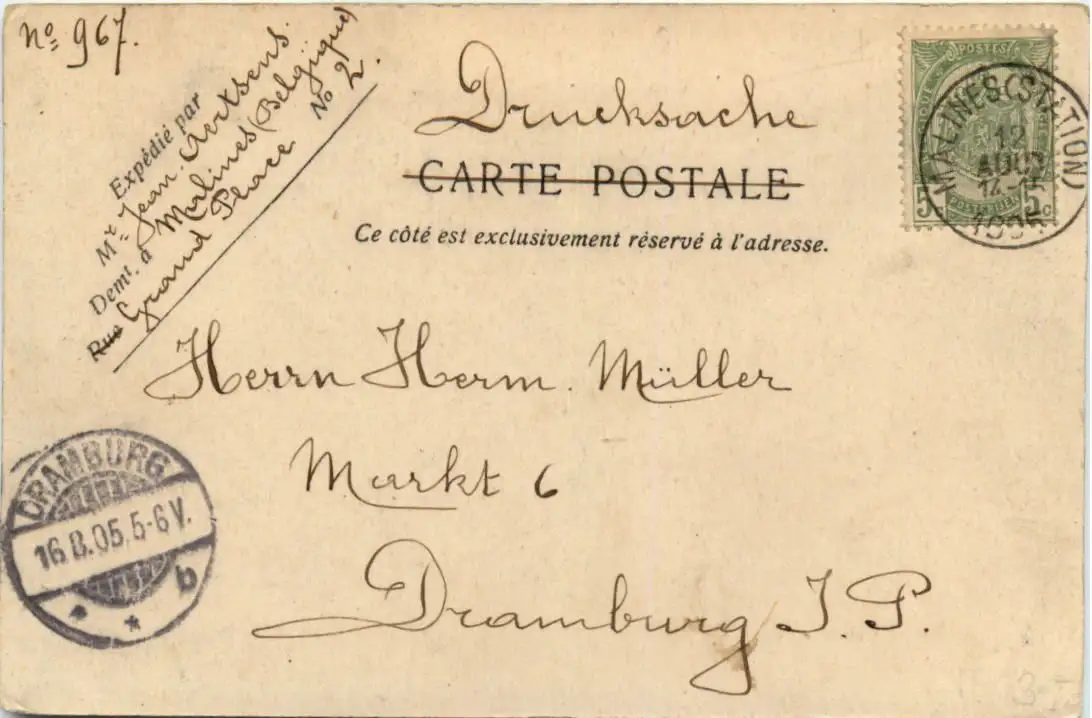 No 967.
Expédié par
Mr Jean Aertsens
Demt. à Malines (Belgique)
Rue Grand Place No 2.
Drucksache
CARTE POSTALE
Ce côté est exclusivement réservé à l'adresse.
POSTES
5 5c
MALINES (STATION)
12
AOUT
14-15
1905
Herrn Herm. Müller
Markt 6
Dramburg I. P.
DRAMBURG
16.8.05.5-6 V.
b